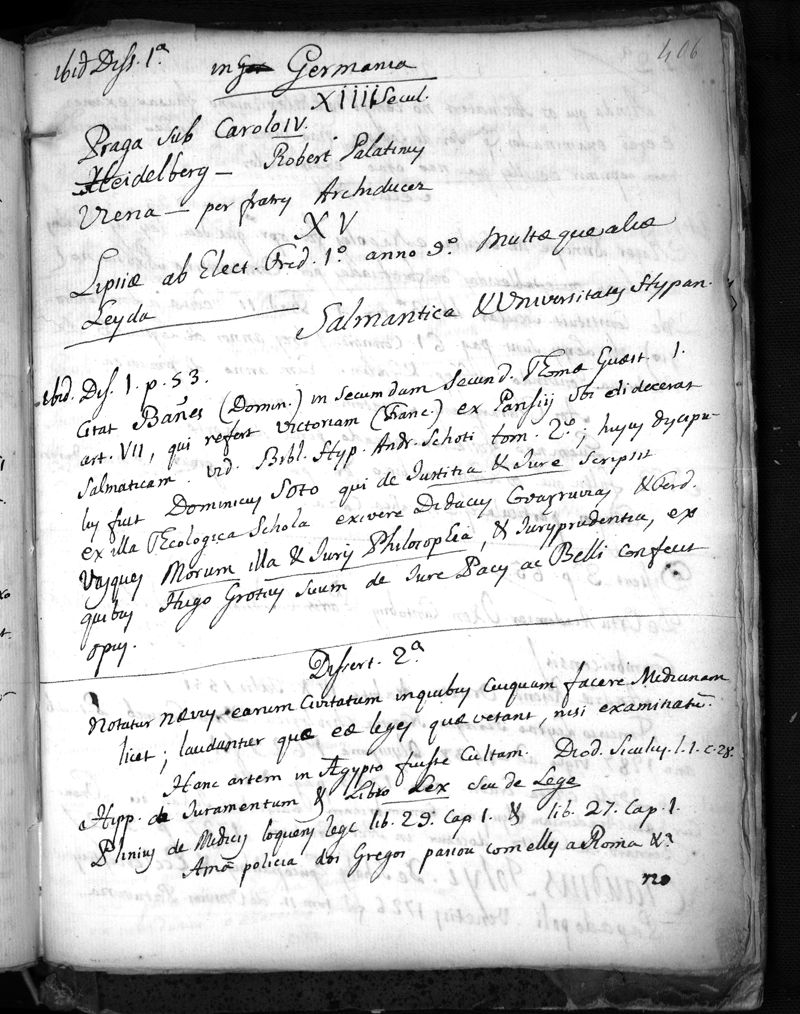 406
ibid Diss. 1ª. in Germania
XIIII Secul.
Praga sub Carolo IV.
Heidelberg — Robert Palatinus
Viena — per fratres Archiducez
XV
Lipsiæ ab Elect. Frid. 1º anno 9º Multæque aliæ
Leyda
Salmantica & Universitates Hypan.
ibid. Dis. 1. p. 53.
Citat Bañes (Domin.) in Secundam Secund. Thomæ Quæst. 1.
art. VII, qui refert Victoriam (Franc.) ex Parisijs ubi didecerat
Salmaticam. vid. Bibl. Hyp. Andr. Schoti tom. 2º; hujus dyscipu-
lus fuit Dominicus Soto qui de Justitia & Jure Scripsit
ex illa Theologica Schola exivere Didacus Covarruvias, & Ferd.
Vasques Morum illa & Juris Philosophia, & Jurysprudentia, ex
quibus Hugo Grotius suum de Jure Pacis ac Belli confecit
opus.
Dissert. 2ª
Notatur nævus earum Civitatum in quibus Cuiquam facere Medicinam
licet; laudantur quæ eæ leges quæ vetant, nisi examinatū.
Hanc artem in Ægypto fuisse Cultam. Diod. Siculus l. 1. c. 28.
Hipp. de Juramentum & Libro Lex seu de Lege
Plinius de Medicis loquens lege lib. 29. Cap 1. & lib. 27. Cap. 1.
A mā policia dos Gregos pasou com elles a Roma &ª
no